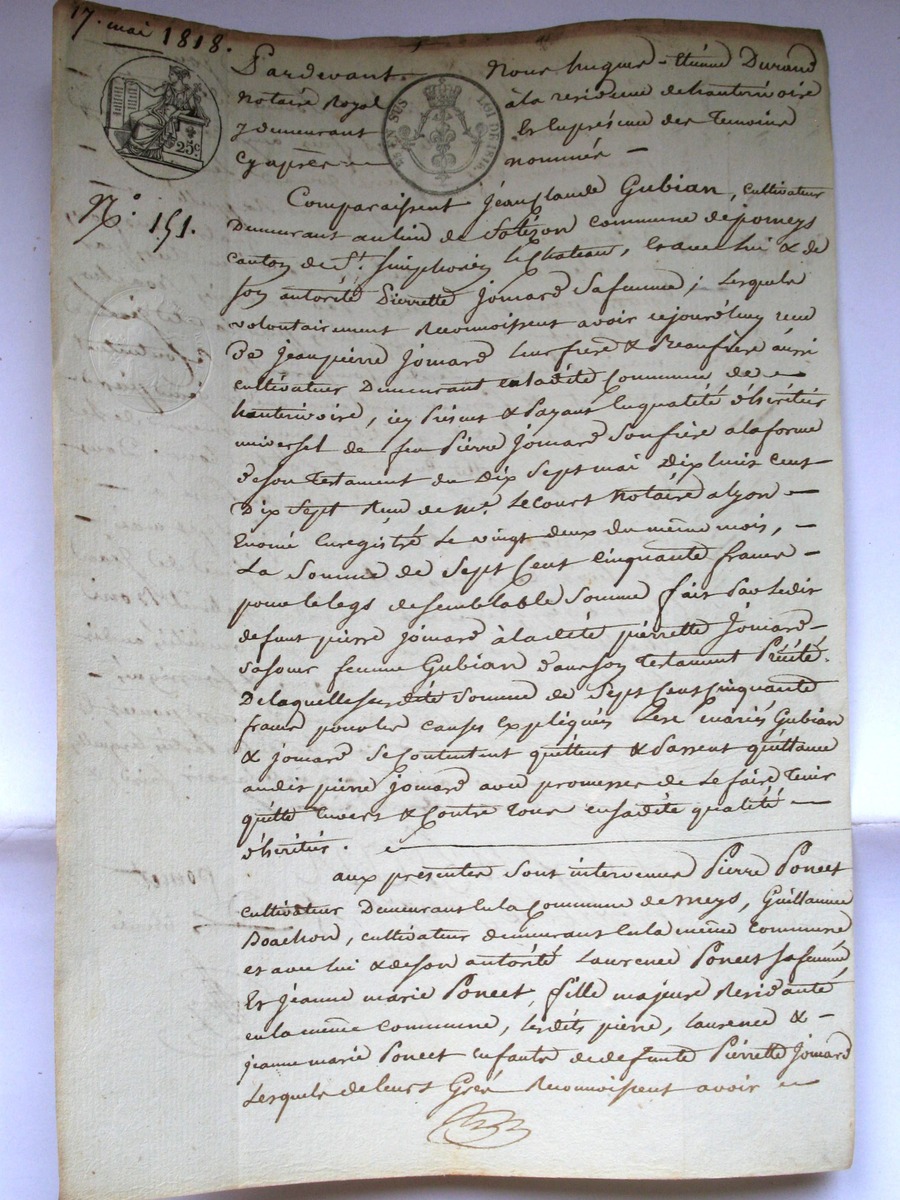 17. mai 1818.
25c
EN SUS LOI DE 1816
N.° 151.
Pardevant Nous hugues-étienne Durand
Notaire Royal à la residence de hauterivoire
y demeurant Et En présence des Temoins
cy après nommés
Comparaissent jéan Claude Gubian, cultivateur
Demeurant au lieu de commune de pomeys
canton de St. simphorien le Chateau, et avec lui & de
son autorité Pierrette Jomard Sa femme; Lesquels
volontairement Reconnoissent avoir cejourd'huy recu
de jean pierre jomard leur frere & Beaufrere aussi
cultivateur Demeurant en ladite Commune de
hauterivoire, icy Présent & Payant En qualité d'héritier
universel de feu Pierre Jomard Son frère a la forme
de son Testament du Dix Sept mai Dix huit Cent
Dix Sept Recu de me. Lecourt Notaire a lyon
Enregistré Le vingt deux du même mois,
La Somme de Sept Cent Cinquante francs
pour le legs de semblable Somme fait Par Ledit
defunt pierre jomard à ladite pierrette Jomard
sa sœur femme Gubian dans son Testament Précité.
De laquelle susdite Somme de Sept Cent Cinquante
francs pour les causes Expliqués Les mariés Gubian
& jomard Se Contentent quittent & Passent quittance
audit pierre jomard avec promesse de Le faire Tenir
quitte Envers & Contre Tous en sadite qualité
d'héritier.
aux présentes Sont intervenus Pierre Poncet
cultivateur Demeurant En la Commune de meys, Guillaume
Boachon, cultivateur demeurant En la même Commune
et avec lui & de son autorité Laurence Poncet sa femme
Et Jéanne marie Poncet, fille majeure Residante
en la même Commune, Lesdits pierre, Laurence &
jeanne marie Poncet enfants de defunte Pierrette Jomard
Lesquels de leurs Grés Reconnoissent avoir